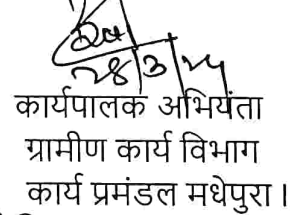 28/3/24
कार्यपालक अभियंता
ग्रामीण कार्य विभाग
कार्य प्रमंडल मधेपुरा ।